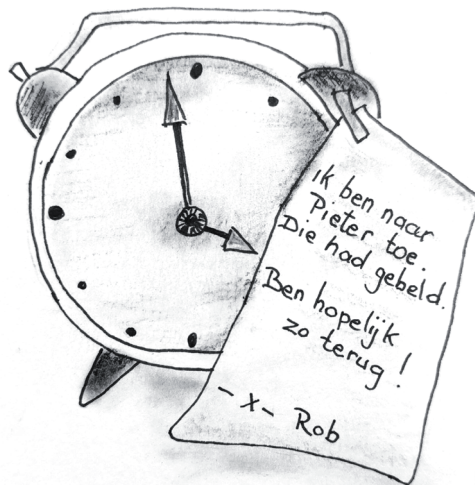 Ik ben naar
Pieter toe.
Die had gebeld.
Ben hopelijk
zo terug!
-x- Rob